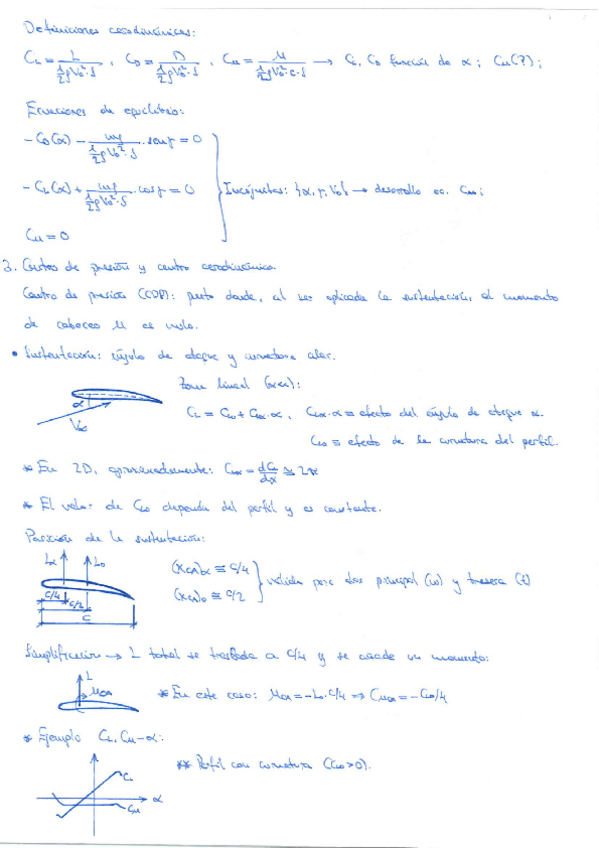 Definiciones aerodinámicas:
C_L = L / (½ρV∞²·S) , C_D = D / (½ρV∞²·S) , C_M = M / (½ρV∞²·c·S) → C_L, C_D función de α ; C_M(?) ;
Ecuaciones de equilibrio:
-C_D(α) - mg / (½ρV∞²·S) · senγ = 0
-C_L(α) + mg / (½ρV∞²·S) · cosγ = 0 } Incógnitas: {α, γ, V∞} → desarrollo ec.
C_M = 0
3. Centro de presión y centro aerodinámico.
Centro de presión (CDP): punto donde, al ser aplicada la sustentación, el momento
de cabeceo M es nulo.
• Sustentación: ángulo de ataque y curvatura alar.
α
V∞
Zona lineal (α<<):
C_L = C_L0 + C_Lα·α , C_Lα·α ≡ efecto del ángulo de ataque α.
C_L0 ≡ efecto de la curvatura del perfil.
* En 2D, aproximadamente: C_Lα = dC_L/dα ≅ 2π
* El valor de C_L0 depende del perfil y es constante.
Posición de la sustentación:
Lα L₀
c/4
c/2
c
(x_CA)α ≅ c/4
(x_CA)₀ ≅ c/2 } válida para alas principal (w) y trasera (t)
Simplificación → L total se traslada a c/4 y se añade un momento:
L
M_CA
* En este caso: M_CA = -L₀·c/4 ⇒ C_MCA = -C_L0/4
* Ejemplo C_L, C_M - α:
** Perfil con curvatura (C_L0>0).
C_L
α
C_M